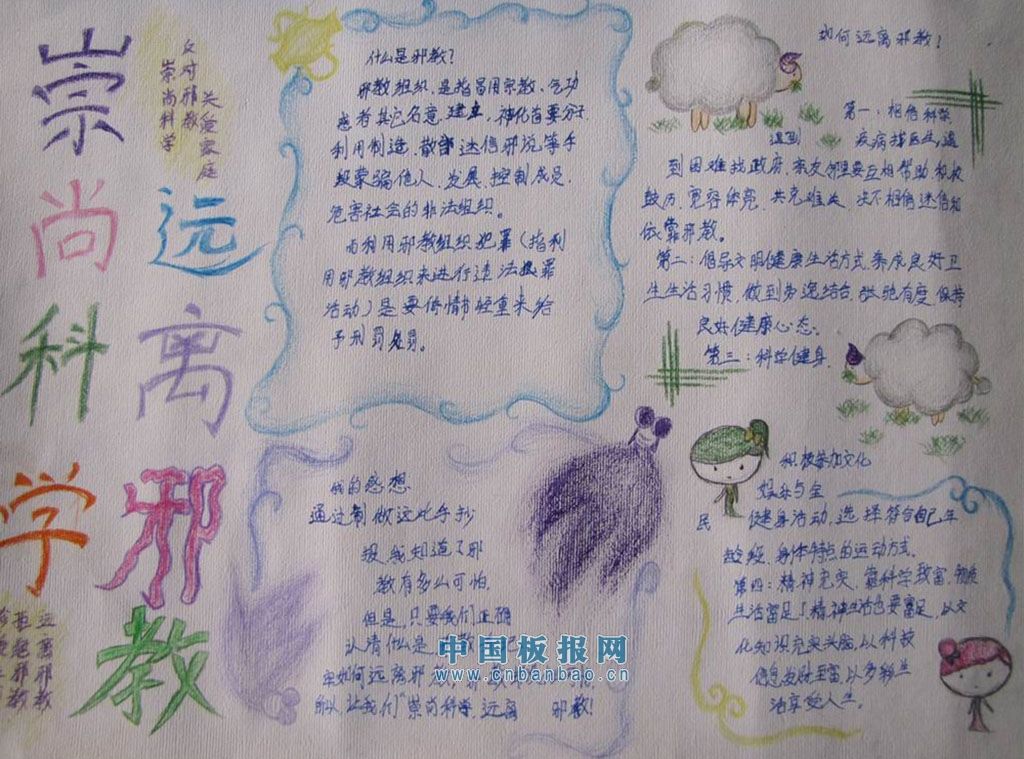 崇尚科学
远离邪教
反对邪教
崇尚科学
关爱家庭
远离邪教
什么是邪教?
邪教组织,是指冒用宗教、气功
或者其它名意,建立,神化首要分子,
利用制造、散部迷信邪说等手
段蒙骗他人,发展、控制成员,
危害社会的非法组织。
而利用邪教组织犯罪(指利
用邪教组织来进行违法犯罪
活动)是要依情节轻重来给
予刑罚名罚。
如何远离邪教?
第一:相信科学
疾病找医生,遇到
到困难找政府,亲友邻里要互相帮助积极
鼓历,宽容体亮,共克难关,决不相信迷信和
依靠邪教。
第二:倡导文明健康生活方式,养成良好卫
生生活习惯,做到劳逸结合,张弛有度,保持
良好健康心态。
第三:科学健身,
积极参加文化
娱乐与全民
健身活动,选择符合自己年
龄段、身体特点的运动方式。
第四:精神充实,靠科学致富,物质
生活富足了精神生活也要富足,以文
化知识充实头脑,以科技
信息发财至富,以多种生
活享受人生。
我的感想
通过制做这此手抄
报,我知道了邪
教有多么可怕,
但是,只要我们正确
认清什么是
如何远离邪教,
所以,让我们"崇尚科学,远离邪教!
中国板报网
www.cnbanbao.cn